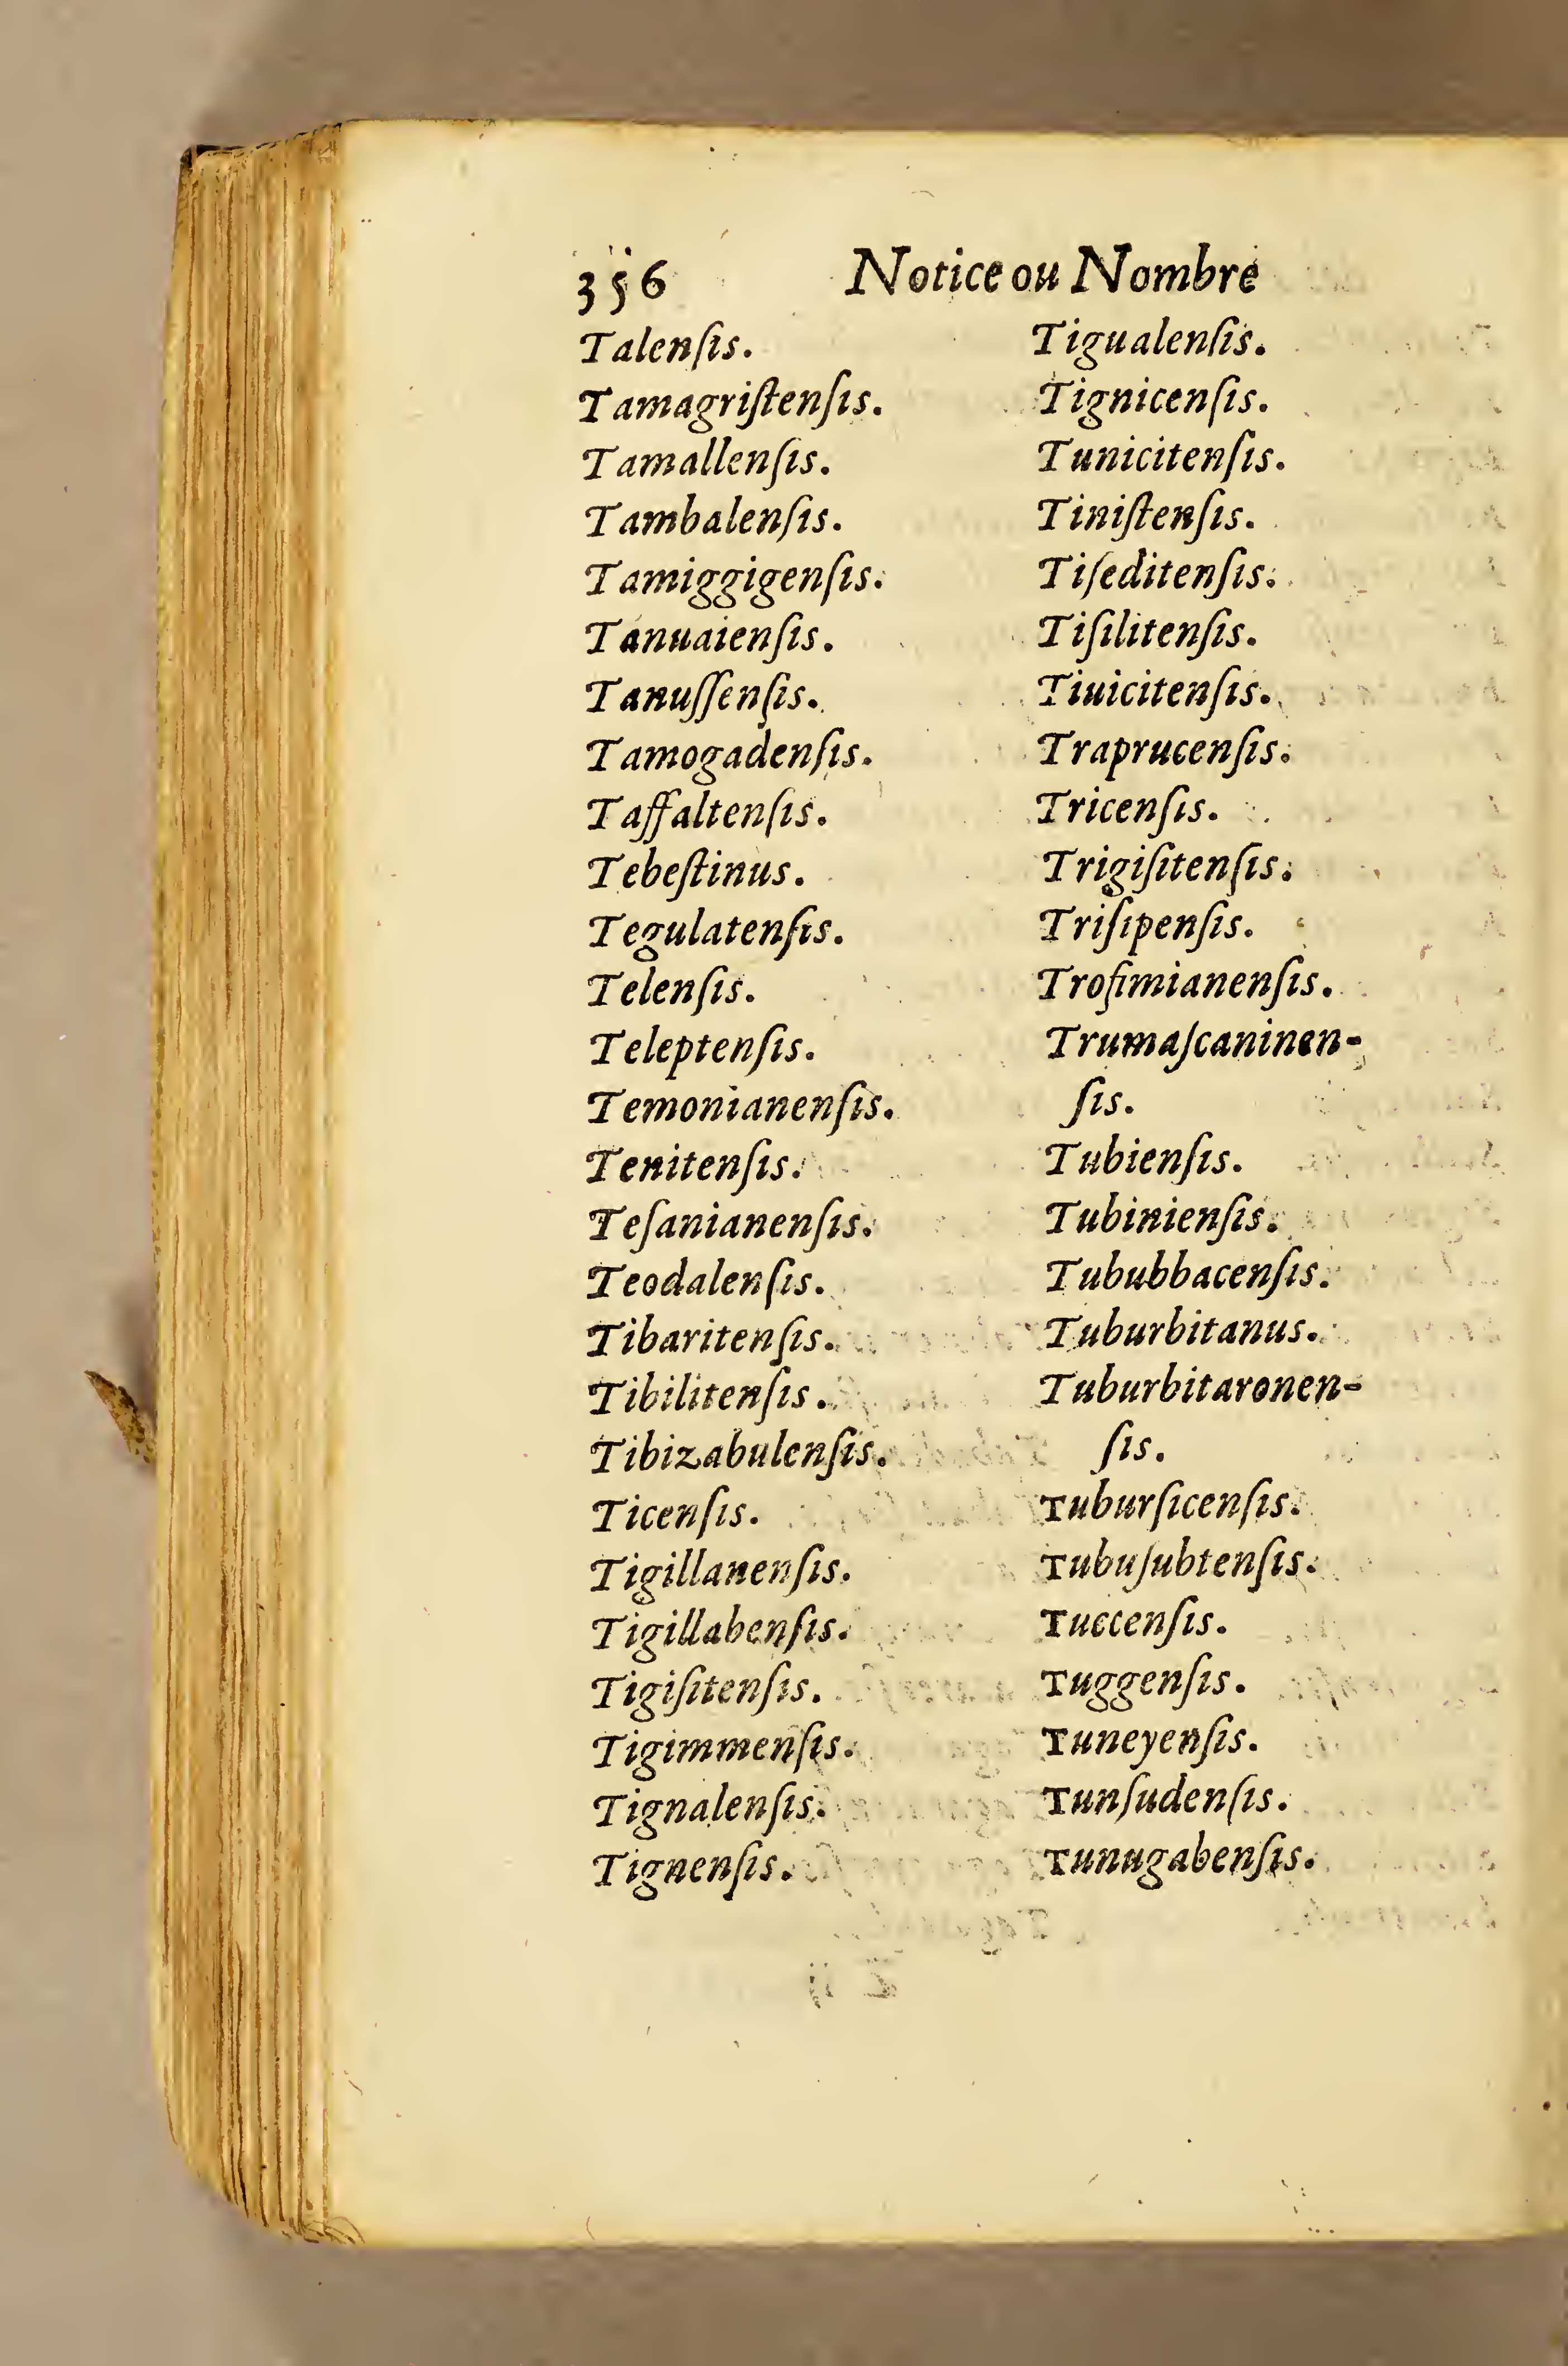 356 Notice ou Nombre
Talenſis.
Tamagriſtenſis.
Tamallenſis.
Tambalenſis.
Tamiggigenſis.
Tanuaienſis.
Tanuſſenſis.
Tamogadenſis.
Taffaltenſis.
Tebeſtinus.
Tegulatenſis.
Telenſis.
Teleptenſis.
Temonianenſis.
Tenitenſis.
Teſanianenſis.
Teodalenſis.
Tibaritenſis.
Tibilitenſis.
Tibizabulenſis.
Ticenſis.
Tigillanenſis.
Tigillabenſis.
Tigiſitenſis.
Tigimmenſis.
Tignalenſis.
Tignenſis.
Tigualenſis.
Tignicenſis.
Tunicitenſis.
Tiniſtenſis.
Tiſeditenſis.
Tiſilitenſis.
Tiuicitenſis.
Traprucenſis.
Tricenſis.
Trigiſitenſis.
Triſipenſis.
Trofimianenſis.
Trumaſcaninen-
ſis.
Tubienſis.
Tubinienſis.
Tububbacenſis.
Tuburbitanus.
Tuburbitaronen-
ſis.
Tuburſicenſis.
Tubuſubtenſis.
Tuccenſis.
Tuggenſis.
Tuneyenſis.
Tunſudenſis.
Tunugabenſis.